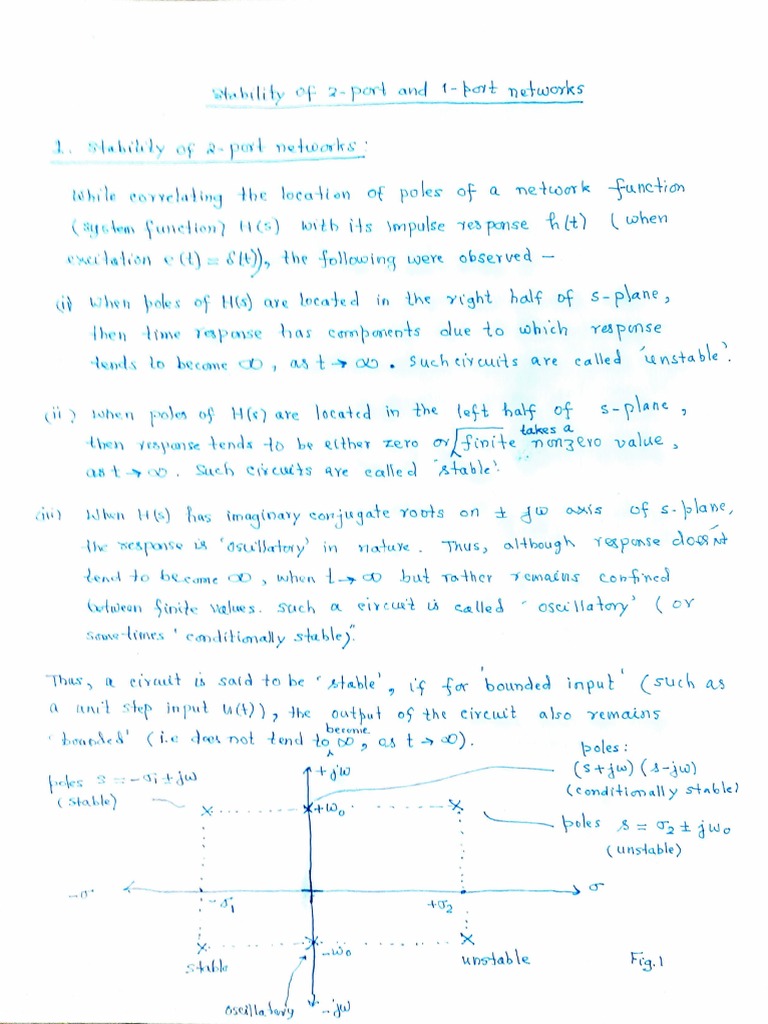 Stability of 2-port and 1-port networks
1. Stability of 2-port networks:
While correlating the location of poles of a network function
(system function) H(s) with its impulse response h(t) (when
excitation e(t) = δ(t)), the following were observed —
(i) When poles of H(s) are located in the right half of s-plane,
then time response has components due to which response
tends to become ∞, as t → ∞. Such circuits are called 'unstable'.
(ii) When poles of H(s) are located in the left half of s-plane,
then response tends to be either zero or takes a finite nonzero value,
as t → ∞. Such circuits are called 'stable'.
(iii) When H(s) has imaginary conjugate roots on ± jω axis of s-plane,
the response is 'oscillatory' in nature. Thus, although response doesn't
tend to become ∞, when t → ∞ but rather remains confined
between finite values. Such a circuit is called 'oscillatory' (or
some-times 'conditionally stable)'.
Thus, a circuit is said to be 'stable', if for 'bounded input' (such as
a unit step input u(t)), the output of the circuit also remains
'bounded' (i.e does not tend to become ∞, as t → ∞).
poles s = -σ₁ ± jω
(stable)
+jω
poles:
(s+jω) (s-jω)
(conditionally stable)
+ω₀
poles s = σ₂ ± jω₀
(unstable)
-σ
-σ₁
+σ₂
σ
-ω₀
stable
unstable
Fig.1
oscillatory
-jω